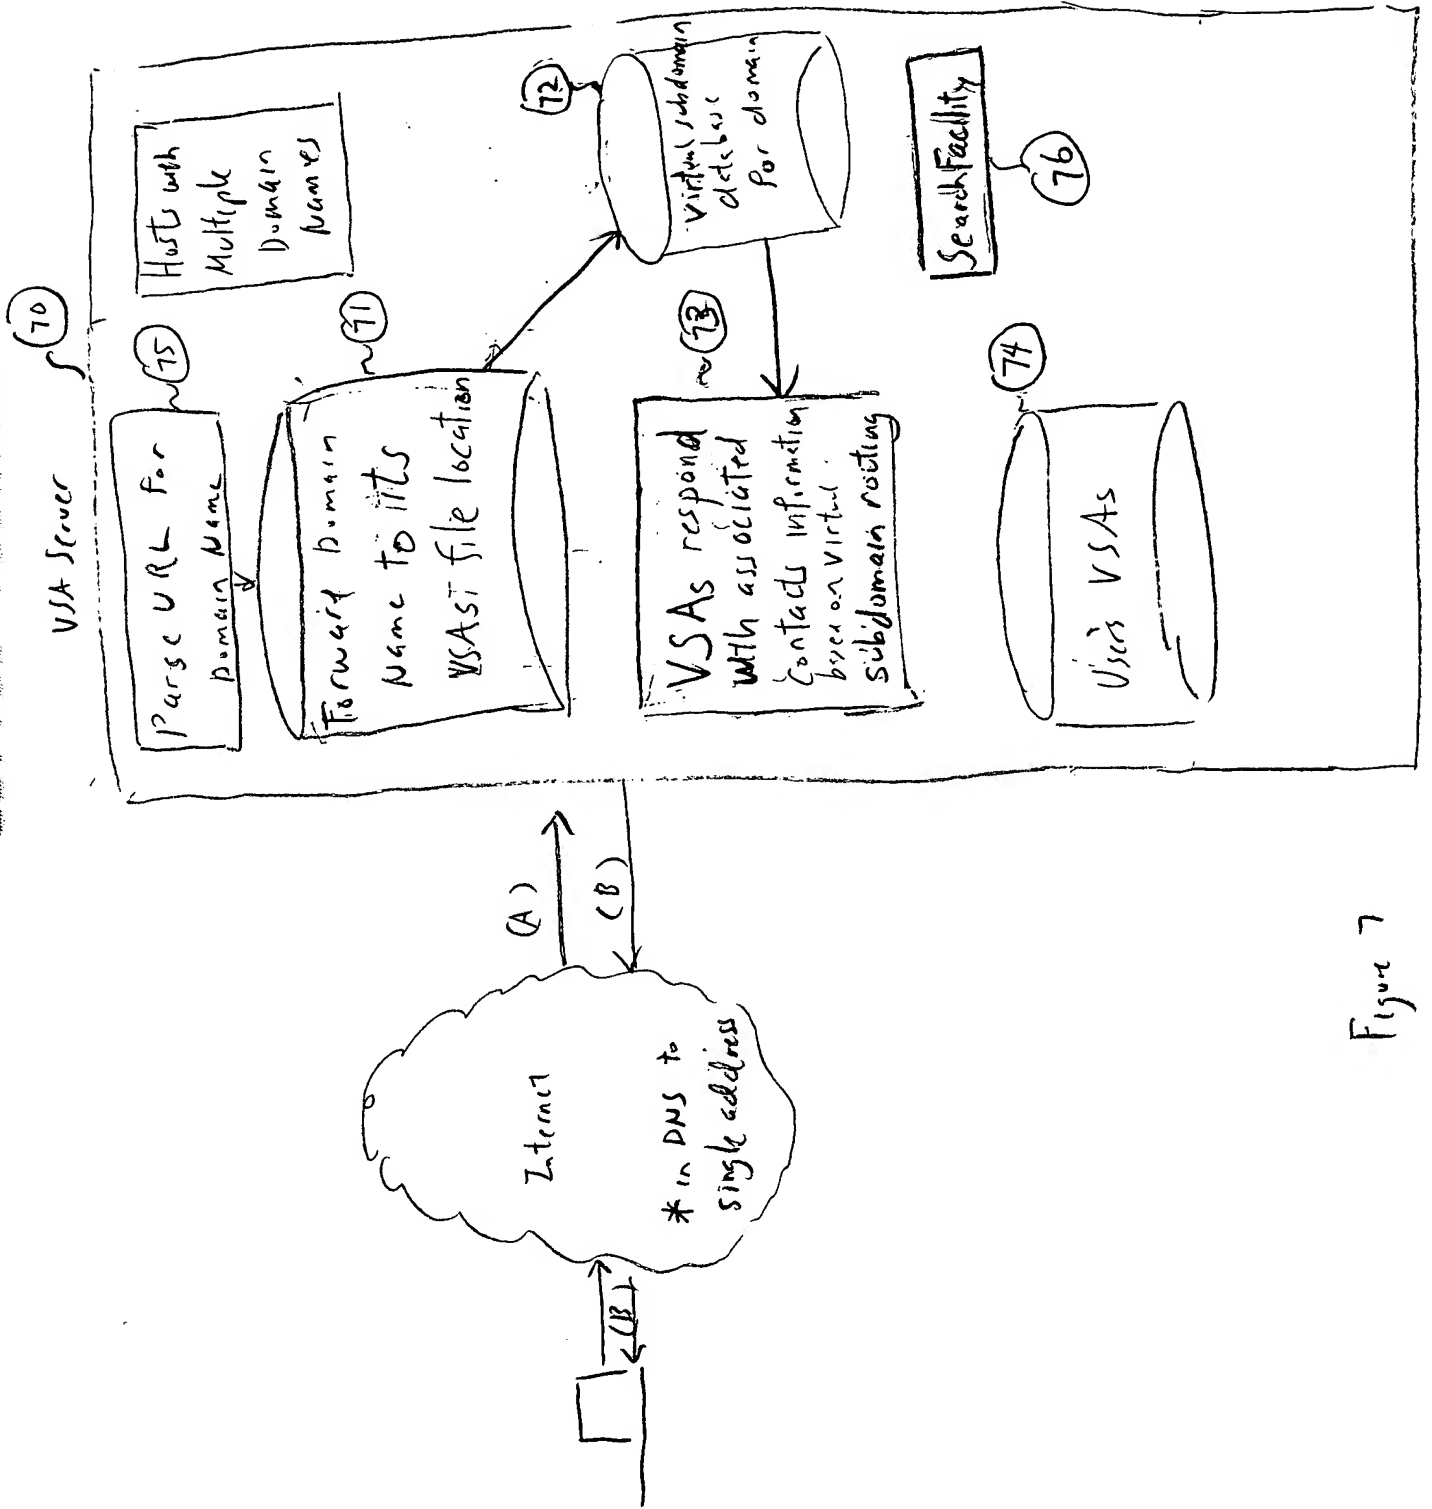 VSA Server
70
Parse URL For
Domain Name
75
Hosts with
Multiple
Domain
Names
Forward Domain
Name to iits
VSAs' file location
71
72
Virtual subdomain
database
for domain
VSAs respond
with associated
Contacts information
based on virtual
subdomain routing
73
Search Facility
76
Users VSAs
74
(A)
(B)
(B)
Internet
* in DNS to
single address
Figure 7